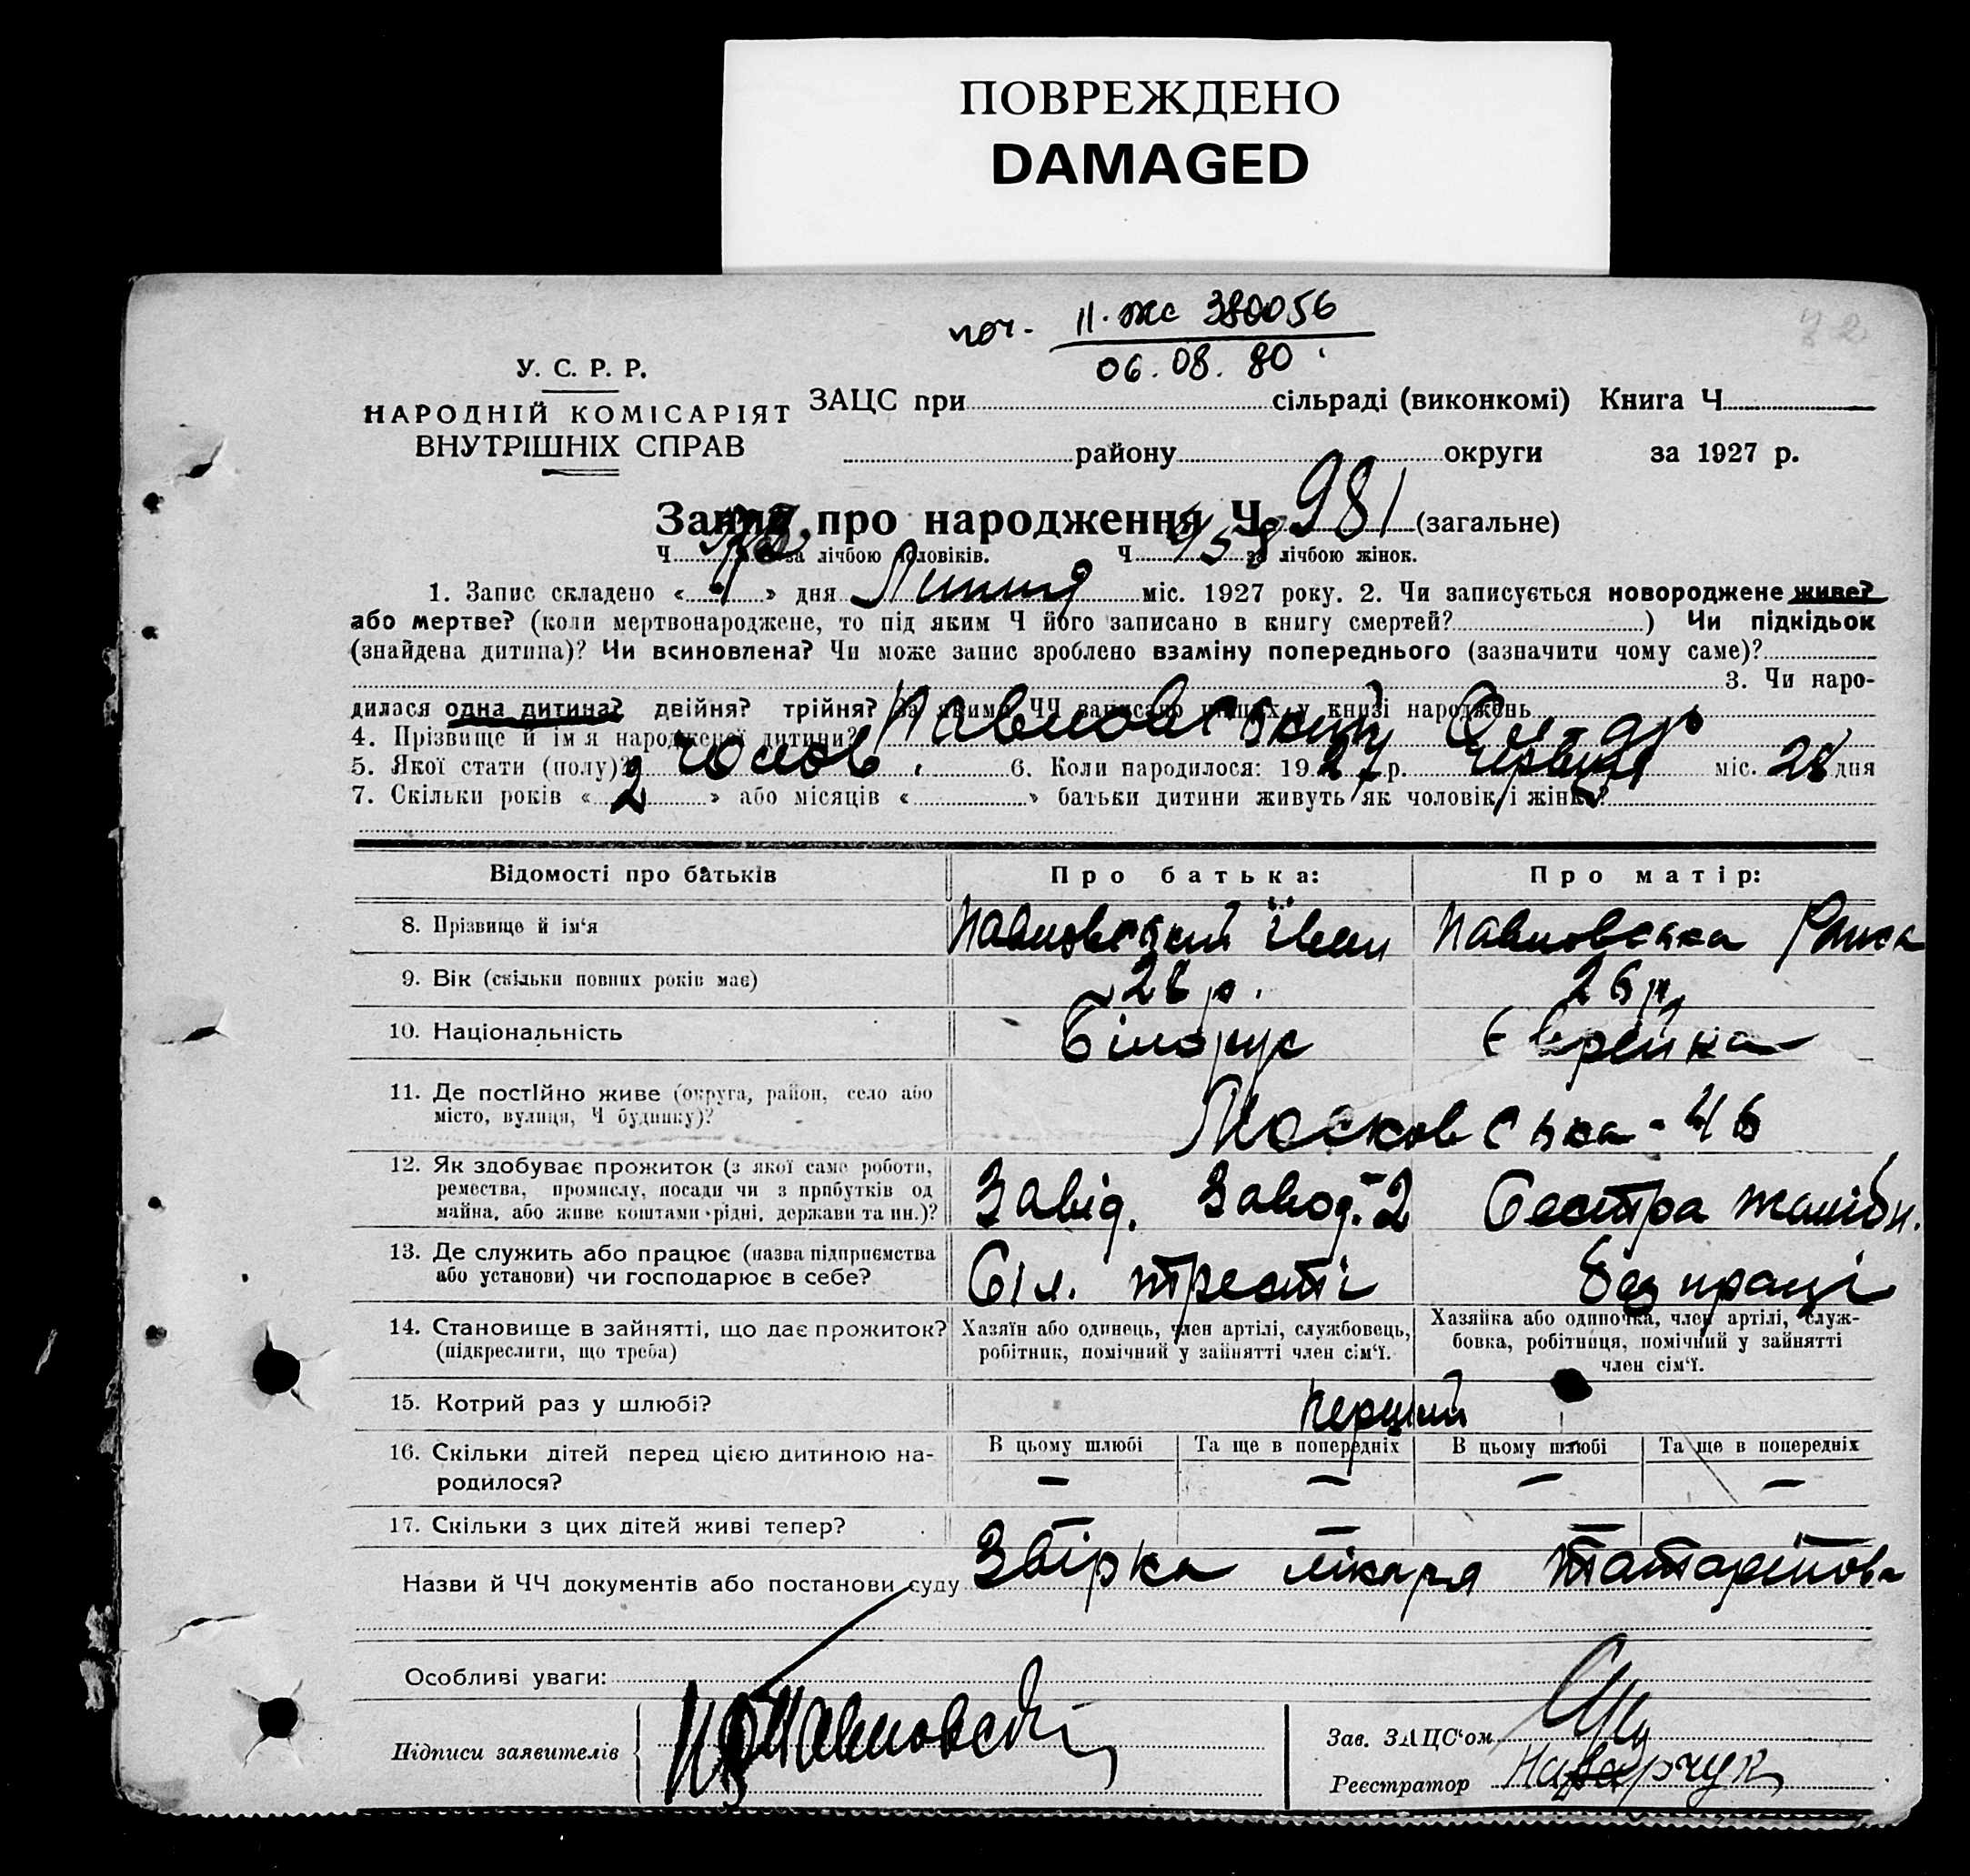 ПОВРЕЖДЕНО
DAMAGED
II-жс 380056
06.08.80
У. С. Р. Р.
НАРОДНІЙ КОМІСАРІЯТ
ВНУТРІШНІХ СПРАВ
ЗАЦС при сільраді (виконкомі) Книга Ч.
району округи за 1927 р.
Запис про народження Ч. 981 (загальне)
Ч за лічбою чоловіків. Ч 458 за лічбою жінок.
1. Запис складено « 1 » дня Липня міс. 1927 року. 2. Чи записується новороджене живе?
або мертве? (коли мертвонароджене, то під яким Ч його записано в книгу смертей? ) Чи підкідьок
(знайдена дитина)? Чи всиновлена? Чи може запис зроблено взаміну попереднього (зазначити чому саме)?
3. Чи наро-
дилася одна дитина? двійня? трійня? За якими ЧЧ записано інших у книзі народжень
4. Прізвище й ім'я народженої дитини? Павловський Ол-др
5. Якої стати (полу)? чолов. 6. Коли народилося: 1927 р. червня міс. 28 дня
7. Скільки років « 2 » або місяців « » батьки дитини живуть як чоловік і жінка?
Відомості про батьків Про батька: Про матір:
8. Прізвище й ім'я Павловський Іван Павловська
9. Вік (скільки повних років має) 28 р. 26 р.
10. Національність Білорус Єврейка
11. Де постійно живе (округа, район, село або
місто, вулиця, Ч будинку)? Московська - 46
12. Як здобуває прожиток (з якої саме роботи,
ремества, промислу, посади чи з прибутків од
майна, або живе коштами рідні, держави та ин.)? Завід. Завод. 2 Сестра жалібн.
13. Де служить або працює (назва підприємства
або установи) чи господарює в себе? Сіл. тресті без праці
14. Становище в зайнятті, що дає прожиток?
(підкреслити, що треба)
Хазяїн або одинець, член артілі, службовець,
робітник, помічний у зайнятті член сім'ї.
Хазяйка або одиночка, член артілі, служ-
бовка, робітниця, помічний у зайнятті
член сім'ї.
15. Котрий раз у шлюбі? перший
16. Скільки дітей перед цією дитиною на-
родилося?
В цьому шлюбі Та ще в попередніх В цьому шлюбі Та ще в попередніх
— — — —
17. Скільки з цих дітей живі тепер? — — —
Назви й ЧЧ документів або постанови суду Збірка лікаря Татарінова
Особливі уваги:
Підписи заявителів Павловскі
Зав. ЗАЦС'ом
Реєстратор